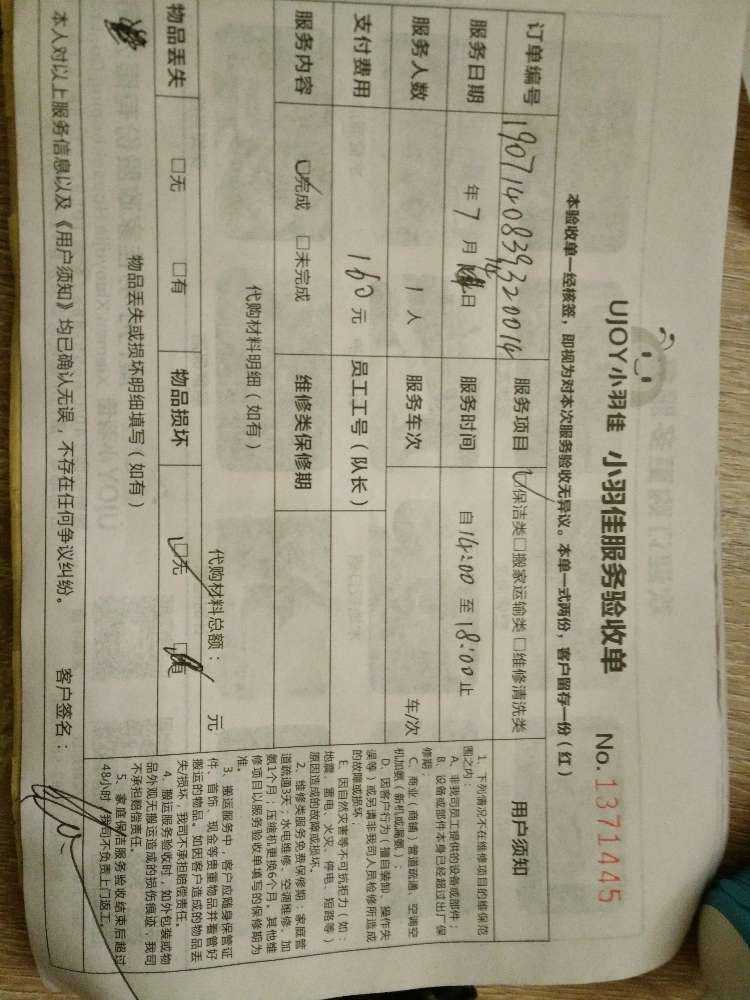 UJOY小羽佳 小羽佳服务验收单 No. 1371445
本验收单一经核签，即视为对本次服务验收无异议。本单一式两份，客户留存一份（红）
订单编号 19071408393320014 服务项目 ☑保洁类□搬家运输类□维修清洗类
服务日期 年 7 月 14 日 服务时间 自 14:00 至 18:00 止
服务人数 1 人 服务车次 车/次
支付费用 160 元 员工工号（队长）
服务内容 ☑完成 □未完成 维修类保修期
代购材料明细（如有）
代购材料总额： 元
物品丢失 □无 □有 物品损坏 ☑无 □有
物品丢失或损坏明细填写（如有）
本人对以上服务信息以及《用户须知》均已确认无误，不存在任何争议纠纷。 客户签名：
用户须知
1、下列情况不在维修项目的维保范
围之内：
A、非我司员工提供的设备或部件；
B、设备或部件本身已经超过出厂保
修期；
C、商业（商铺）管道疏通、空调空
机加氨（新机或漏氨）；
D、因客户行为（擅自装卸、操作失
误等）或另请非我司人员检修所造成
的故障或损坏；
E、因自然灾害等不可抗拒力（如：
地震、雷电、火灾、停电、短路等）
原因造成的故障或损坏。
2、维修类服务免费保修期：家庭管
道疏通3天；水电维修、空调维修、加
氨1个月；压缩机更换6个月。其他维
修项目以服务验收单填写的保修期为
准。
3、搬运服务中，客户应随身保管证
件、首饰、现金等贵重物品并看管好
搬运的物品，如因客户造成的物品丢
失/损坏，我司不承担赔偿责任。
4、搬运服务验收时，如外包装或物
品外观无搬运造成的损伤痕迹，我司
不承担赔偿责任。
5、家庭保洁服务验收结束后超过
48小时，我司不负责上门返工。